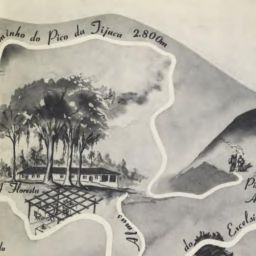 minho do Pico da Tijuca 2.800m
Floresta
Almas
do
Excelsi